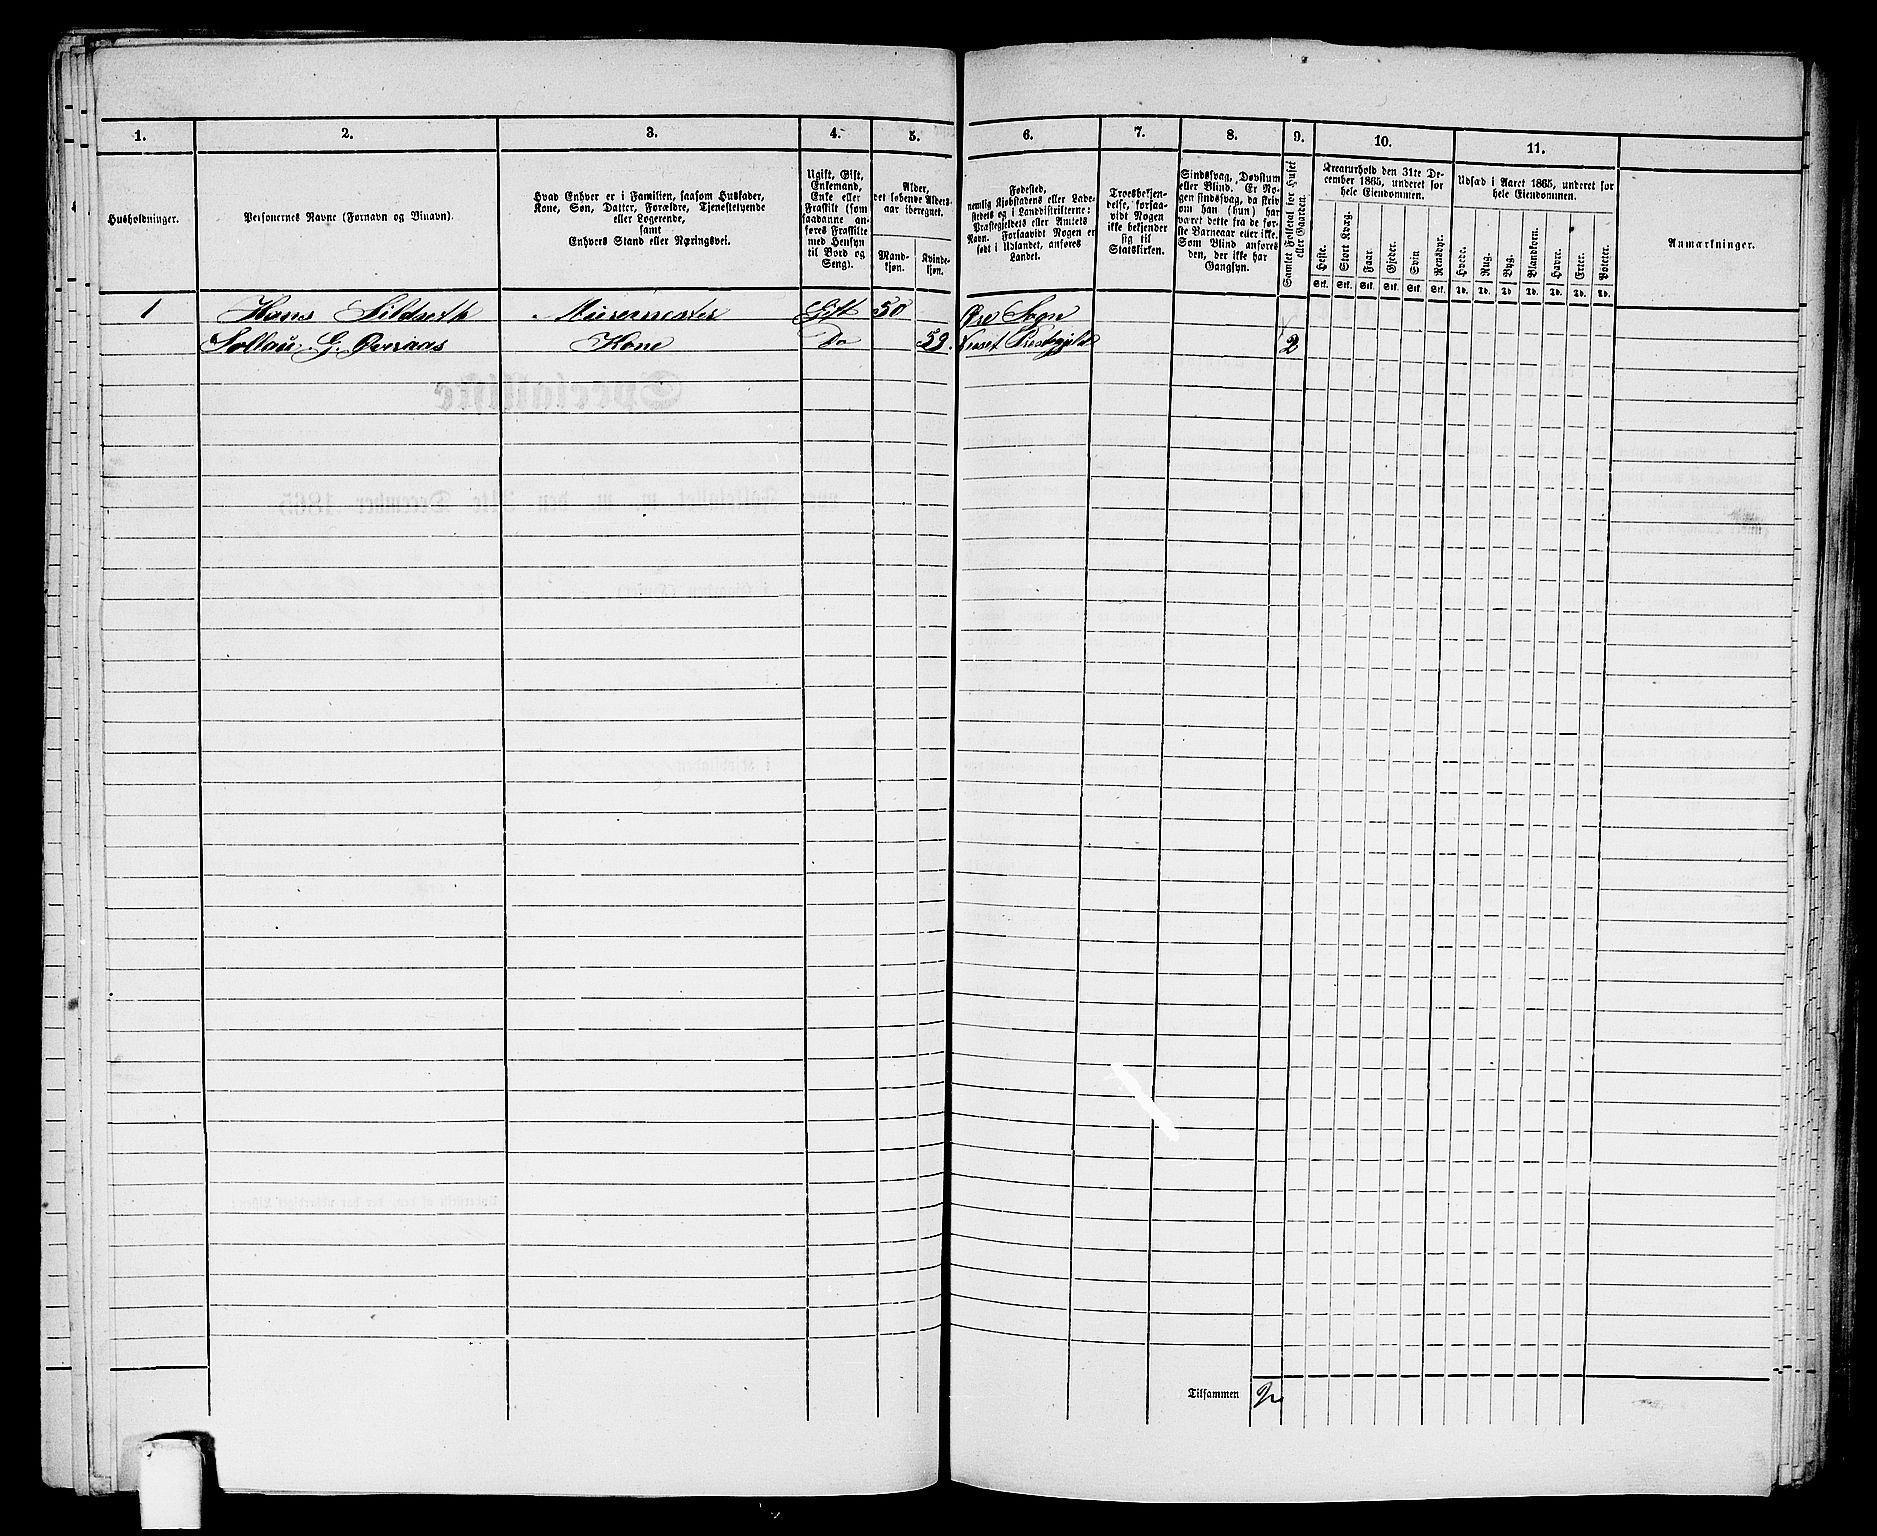 1. 2. 3. 4. 5. 6. 7. 8. 9. 10. 11.
Husholdninger.
Personernes Navne (Fornavn og Tilnavn).
Hvad Enhver er i Familien, saasom Husfader,
Kone, Søn, Datter, Forældre, Tjenestetyende
eller Logerende,
samt
Enhvers Stand eller Næringsvei.
Ugift, Gift,
Enkemand,
Enke eller
Fraskilt (som
saadanne an-
føres Fraskilte
med Hensyn
til Bord og
Seng).
Alder,
det løbende Alders-
aar iberegnet.
Mand-
kjøn.
Kvinde-
kjøn.
Fødested,
nemlig Kjøbstadens eller Lade-
stedets og i Landdistrikterne:
Præstegjeldets eller Amtets
Navn. Forsaavidt Nogen er
født i Udlandet, anføres
Landet.
Troesbekjen-
delse, forsaa-
vidt Nogen
ikke bekjender
sig til
Statskirken.
Sindssvag, Døvstum
eller Blind. Er No-
gen sindssvag, da skriv
om han (hun) har
været dette fra de før-
ste Barneaar eller ikke.
Som Blind anføres
den, der ikke har
Gangsyn.
Samlet Folketal for Huset
eller Gaarden.
Kreaturhold den 31te De-
cember 1865, underet for
hele Eiendommen.
Heste. Stort Kvæg. Faar Gjeder. Svin Rensdyr.
Stk. Stk. Stk. Stk. Stk. Stk.
Udsæd i Aaret 1865, underet for
hele Eiendommen.
Hvede. Rug. Byg. Blandkorn. Havre. Erter. Poteter.
Td. Td. Td. Td. Td. Td. Td.
Anmærkninger.
1 Hans Sildseth Muurmester Gift 50 Øre Sogn
G. Øveraas Kone Do 53 2
Tilsammen 2